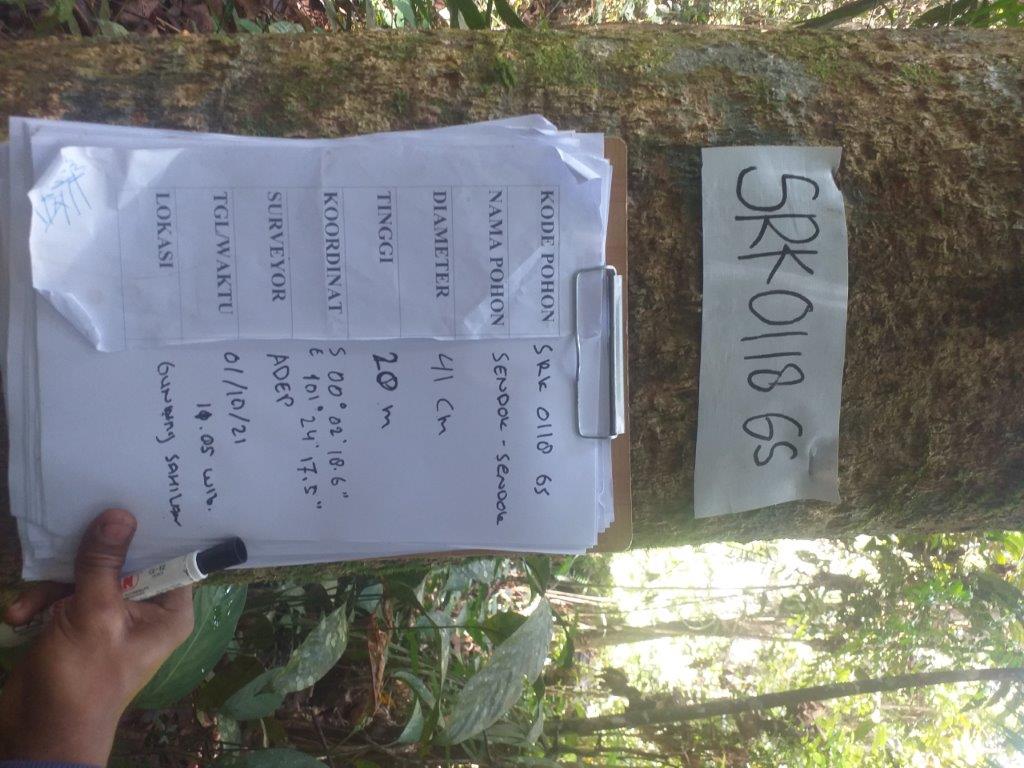 SRK 0118 GS
KODE POHON SRK 0118 GS
NAMA POHON SENDOK - SENDOK
DIAMETER 41 Cm
TINGGI 20 m
KOORDINAT S 00° 02' 18.6"
E 101° 24' 17.5"
SURVEYOR ADEP
TGL/WAKTU 01/10/21
.05 WIB.
LOKASI GUNUNG SAHILAN